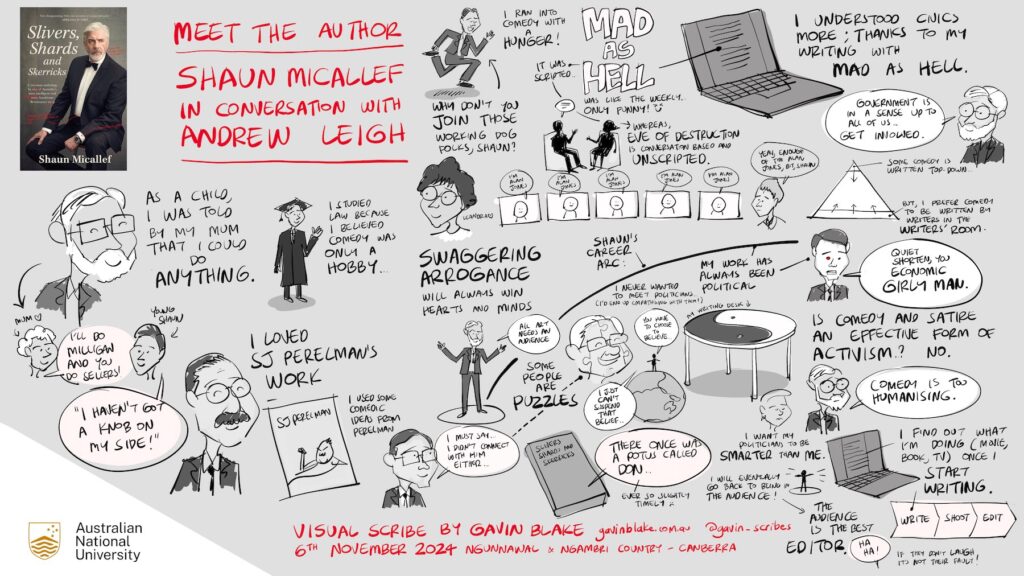 Slivers,
Shards
and
Skerricks
Shaun Micallef
MEET THE AUTHOR
SHAUN MICALLEF
IN CONVERSATION WITH
ANDREW LEIGH
I RAN INTO
COMEDY WITH
A
HUNGER!
WHY DON'T YOU
JOIN THOSE
WORKING DOG
FOLKS, SHAUN?
MAD
AS
HELL
IT WAS
SCRIPTED..
WAS LIKE THE WEEKLY..
ONLY FUNNY!
WHEREAS,
EVE OF DESTRUCTION
IS CONVERSATION BASED AND
UNSCRIPTED.
I UNDERSTOOD CIVICS
MORE; THANKS TO MY
WRITING WITH
MAD AS HELL.
GOVERNMENT IS
IN A SENSE UP TO
ALL OF US..
GET INVOLVED.
I'M ALAN
JONES
I'M ALAN
JONES
I'M ALAN
JONES
I'M ALAN
JONES
I'M ALAN
JONES
YEAH, ENOUGH
OF THE ALAN
JONES, BIT, SHAUN
SOME COMEDY IS
WRITTEN TOP-DOWN...
BUT, I PREFER COMEDY
TO BE WRITTEN BY
WRITERS IN THE
WRITERS' ROOM.
AS A CHILD,
I WAS TOLD
BY MY MUM
THAT I COULD
DO
ANYTHING.
MUM
YOUNG
SHAUN
I'LL DO
MILLIGAN AND YOU
DO SELLERS!
"I HAVEN'T GOT
A KNOB ON
MY SIDE!"
I STUDIED
LAW BECAUSE
I BELIEVED
COMEDY WAS
ONLY A
HOBBY...
I LOVED
SJ PERELMAN'S
WORK
SJ PERELMAN
I USED SOME
COMEDIC
IDEAS FROM
PERELMAN
SWAGGERING
ARROGANCE
WILL ALWAYS WIN
HEARTS AND MINDS
SHAUN'S
CAREER
ARC:
MY WORK HAS
ALWAYS BEEN
POLITICAL
I NEVER WANTED
TO MEET POLITICIANS...
(I'D END UP EMPATHISING WITH THEM!)
QUIET
SHORTEN, YOU
ECONOMIC
GIRLY MAN.
ALL ART
NEEDS AN
AUDIENCE
SOME
PEOPLE
ARE
PUZZLES
YOU HAVE
TO CHOOSE
TO
BELIEVE.
MY WRITING DESK
I JUST
CAN'T
SUSPEND THAT
BELIEF..
I MUST SAY...
I DIDN'T CONNECT
WITH HIM
EITHER..
SLIVERS
SHARDS AND
SKERRICKS
THERE ONCE WAS
A POTUS CALLED
DON..
EVER SO SLIGHTLY
TIMELY
IS COMEDY AND SATIRE
AN EFFECTIVE FORM OF
ACTIVISM? NO.
COMEDY IS TOO
HUMANISING.
I WANT MY
POLITICIANS TO BE
SMARTER THAN ME.
I WILL EVENTUALLY
GO BACK TO BEING IN
THE AUDIENCE!
I FIND OUT WHAT
I'M DOING (MOVIE,
BOOK, TV) ONCE I
START
WRITING.
WRITE SHOOT EDIT
THE
AUDIENCE
IS THE BEST
EDITOR.
HA
HA!
IF THEY DON'T LAUGH,
IT'S NOT THEIR FAULT!
VISUAL SCRIBE BY GAVIN BLAKE gavinblake.com.au @gavin_scribes
6TH NOVEMBER 2024 NGUNNAWAL & NGAMBRI COUNTRY - CANBERRA
Australian
National
University